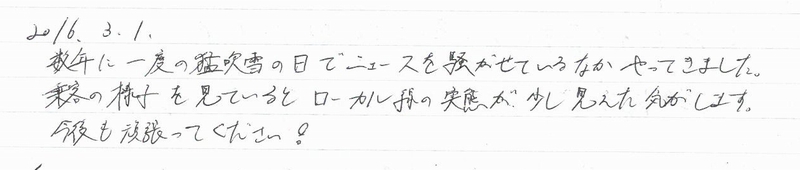 2016. 3. 1.
数年に一度の猛吹雪の日でニュースを騒がせているなかやってきました。
乗客の様子を見ているとローカル線の実態が少し見えた気がします。
今後も頑張ってください！